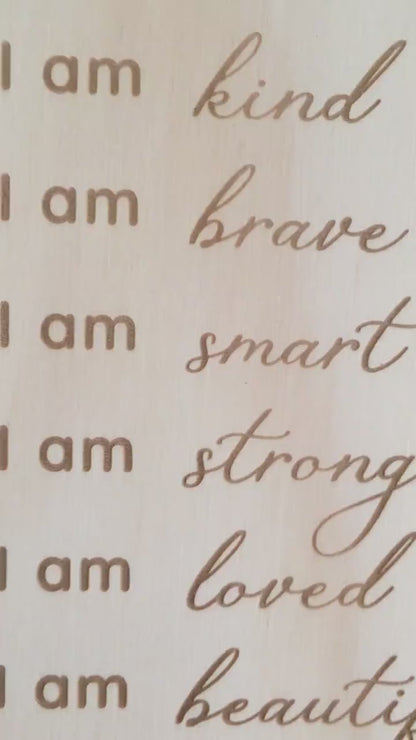 I am kind
I am brave
I am smart
I am strong
I am loved
I am